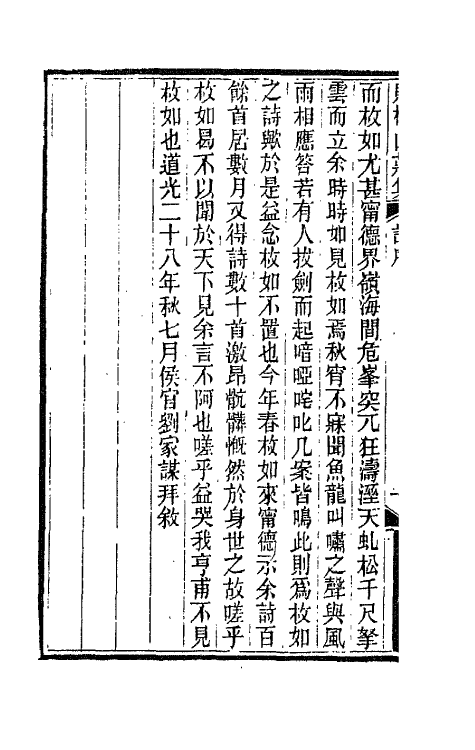 而枚如尤甚甯德界嶺海間危峯突兀狂濤溼天虬松千尺拏
雲而立余時時如見枚如焉秋宵不寐聞魚龍叫嘯之聲與風
雨相應答若有人拔劍而起喑啞咤叱几案皆鳴此則爲枚如
之詩歟於是益念枚如不置也今年春枚如來甯德示余詩百
餘首居數月又得詩數十首激昂骯髒慨然於身世之故嗟乎
枚如曷不以聞於天下見余言不阿也嗟乎益哭我亨甫不見
枚如也道光二十八年秋七月侯官劉家謀拜敘